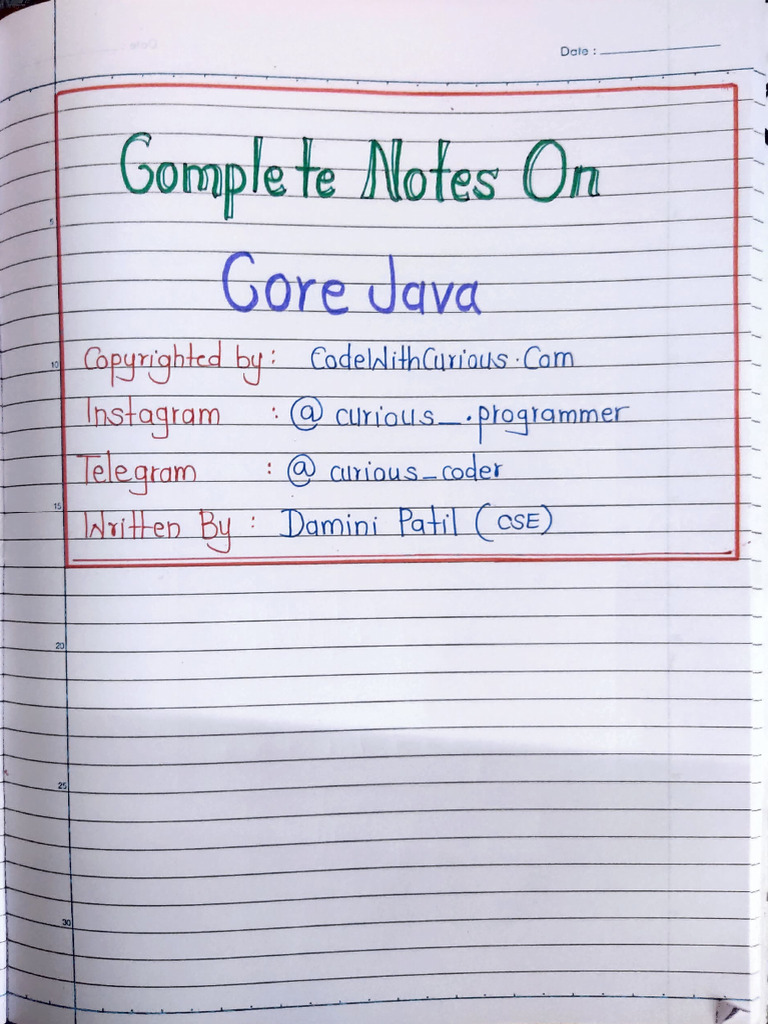 Date :
Complete Notes On
Core Java
Copyrighted by: CodeWithCurious.Com
Instagram : @ curious_.programmer
Telegram : @ curious_coder
Written By : Damini Patil (CSE)
5
10
15
20
25
30